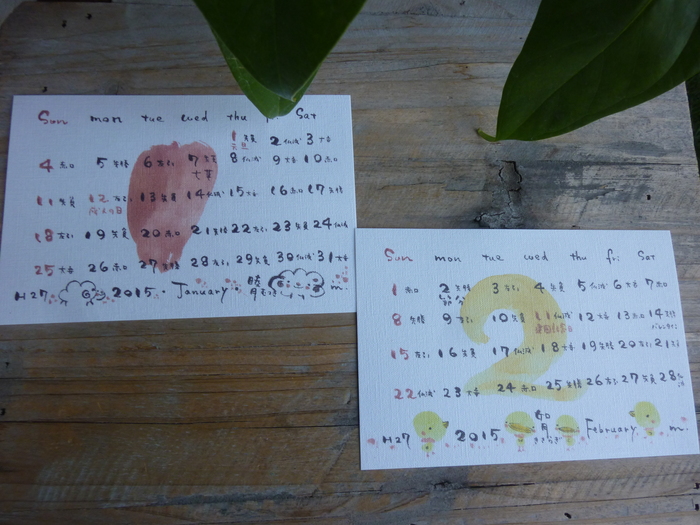 Sun mon tue wed thu fri Sat
1 先負 2 仏滅 3 大安
元旦
4 赤口 5 先勝 6 友引 7 先負 8 仏滅 9 大安 10 赤口
七草
11 先負 12 友引 13 先負 14 仏滅 15 大安 16 赤口 17 先勝
成人の日
18 友引 19 先負 20 赤口 21 先勝 22 友引 23 先負 24 仏滅
25 大安 26 赤口 27 先勝 28 友引 29 先負 30 仏滅 31 大安
H27 2015. January 睦月 m.
Sun mon tue wed thu fri Sat
1 赤口 2 先勝 3 友引 4 先負 5 仏滅 6 大安 7 赤口
節分
8 先勝 9 友引 10 先負 11 仏滅 12 大安 13 赤口 14 先勝
バレンタイン
15 友引 16 先負 17 仏滅 18 大安 19 先勝 20 友引 21
22 仏滅 23 大安 24 赤口 25 先勝 26 友引 27 先負 28 仏滅
H27 2015 如月 きさらぎ February m.